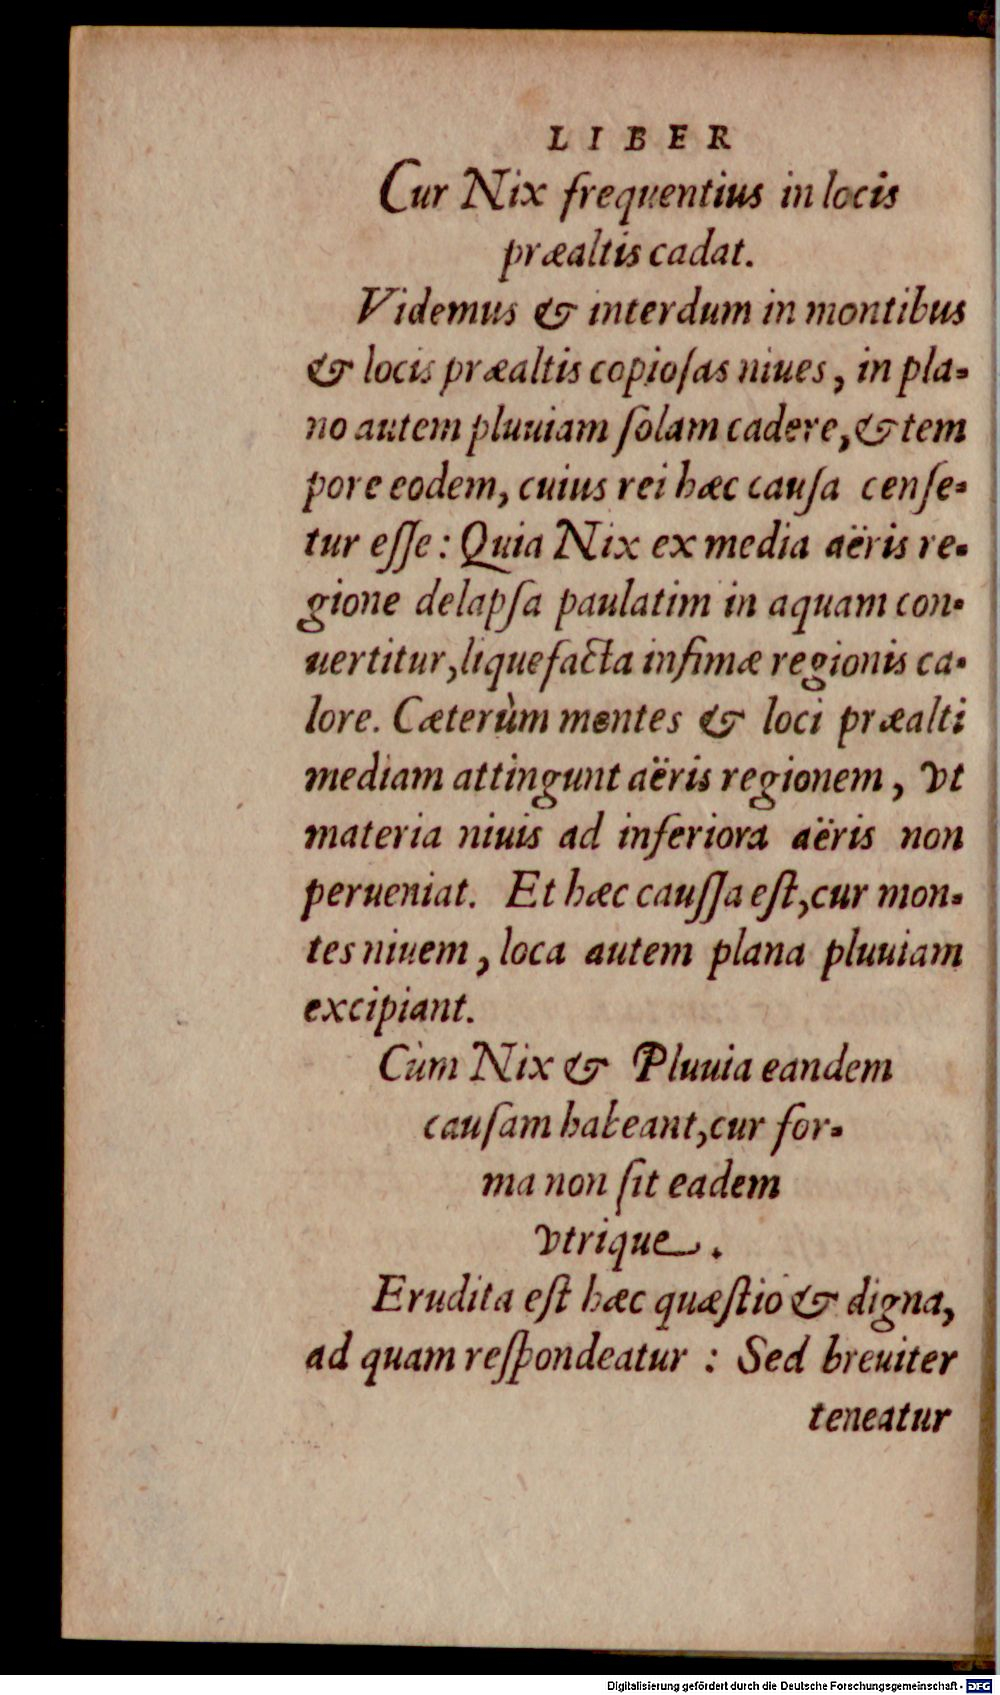 LIBER
Cur Nix frequentius in locis
præaltis cadat.
Videmus & interdum in montibus
& locis præaltis copioſas niues, in pla-
no autem pluuiam ſolam cadere, & tem
pore eodem, cuius rei hæc cauſa cenſe-
tur eſſe: Quia Nix ex media aëris re-
gione delapſa paulatim in aquam con-
uertitur, liquefacta infimæ regionis ca-
lore. Cæterùm montes & loci præalti
mediam attingunt aëris regionem, vt
materia niuis ad inferiora aëris non
perueniat. Et hæc cauſſa eſt, cur mon-
tes niuem, loca autem plana pluuiam
excipiant.
Cùm Nix & Pluuia eandem
cauſam habeant, cur for-
ma non ſit eadem
vtrique.
Erudita eſt hæc quæſtio & digna,
ad quam reſpondeatur : Sed breuiter
teneatur
Digitalisierung gefördert durch die Deutsche Forschungsgemeinschaft - DFG